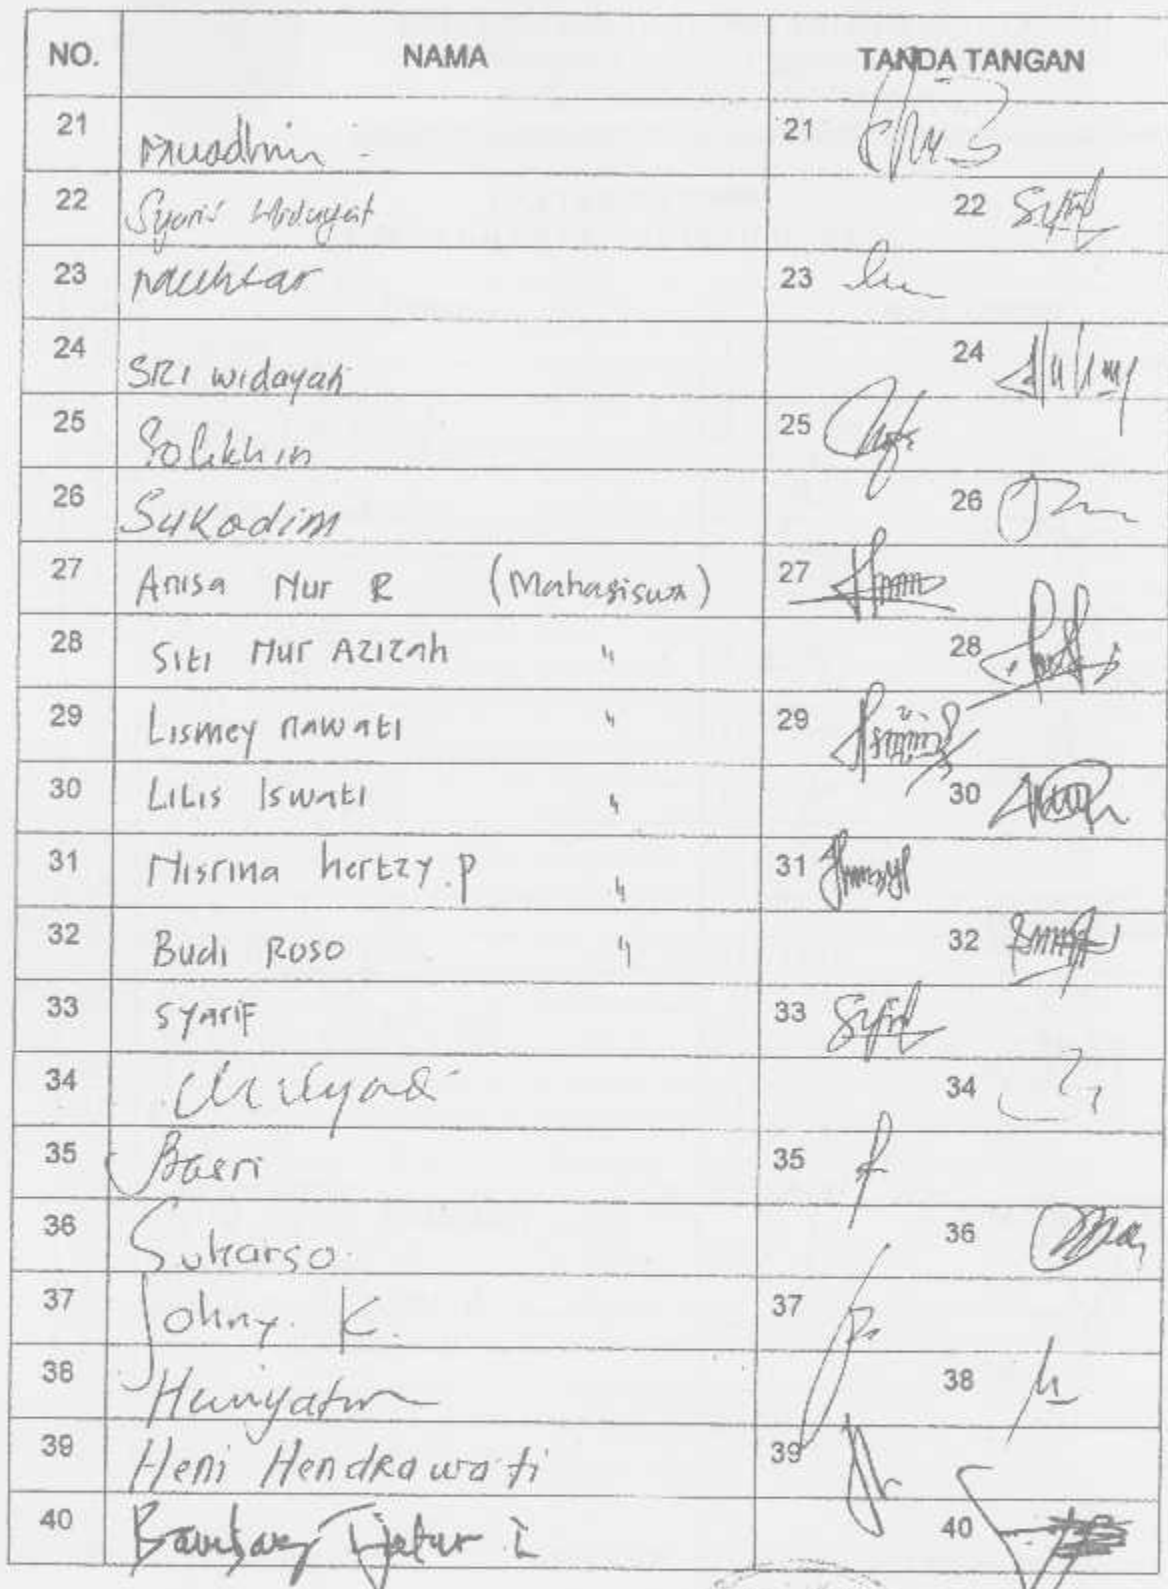 NO. NAMA TANDA TANGAN
21 Muadhmin 21
22 Syarif Hidayat 22
23 Mucktar 23
24 SRI widayati 24
25 Solikhin 25
26 Sukadim 26
27 Anisa Nur R (Mahasiswa) 27
28 Siti Nur Azizah " 28
29 Lismey nawati " 29
30 Lilis Iswati " 30
31 Nisrina hertzy.p " 31
32 Budi Roso " 32
33 Syarif 33
34 Mulyadi 34
35 Basri 35
36 Suharso. 36
37 Johny. K. 37
38 38
39 Heni Hendrawati 39
40 Bambang Tjatur I 40